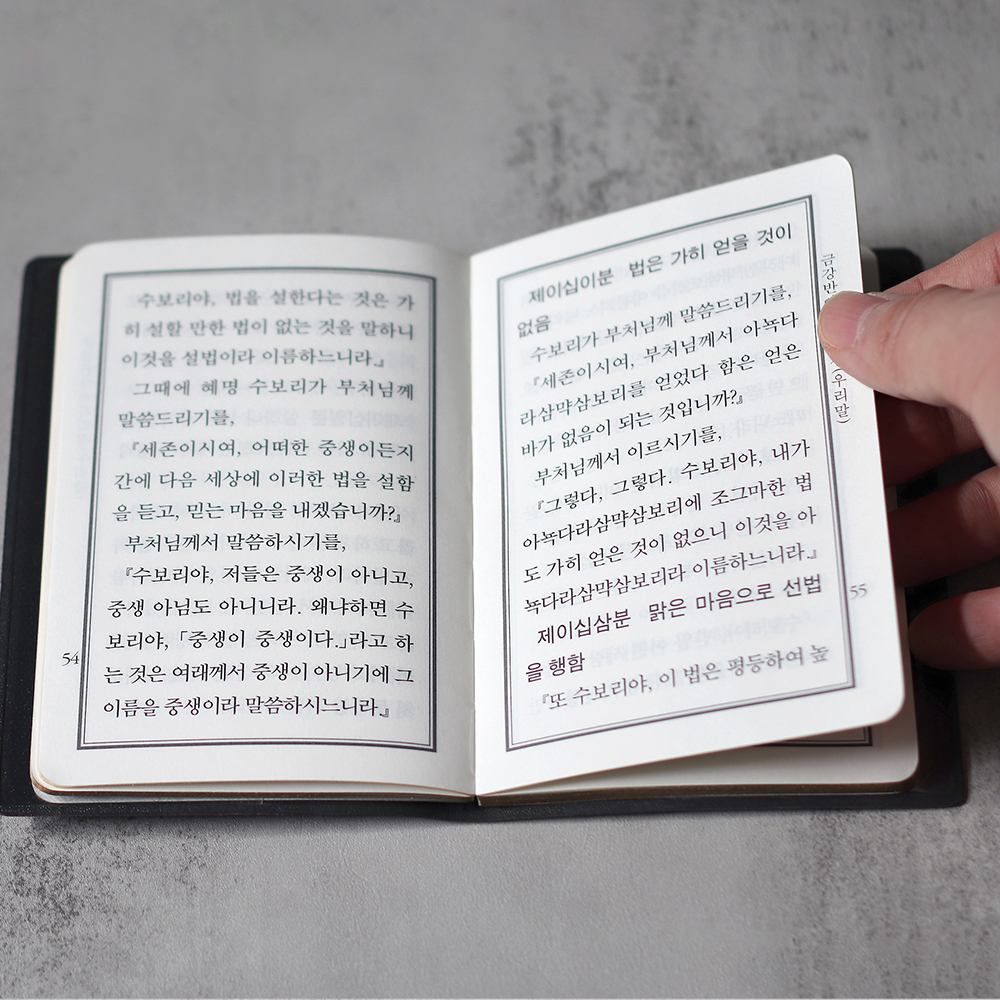 수보리야, 법을 설한다는 것은 가
히 설할 만한 법이 없는 것을 말하니
이것을 설법이라 이름하느니라.』
그때에 혜명 수보리가 부처님께
말씀드리기를,
『세존이시여, 어떠한 중생이든지
간에 다음 세상에 이러한 법을 설함
을 듣고, 믿는 마음을 내겠습니까?』
부처님께서 말씀하시기를,
『수보리야, 저들은 중생이 아니고,
중생 아님도 아니니라. 왜냐하면 수
보리야, 「중생이 중생이다.」라고 하
는 것은 여래께서 중생이 아니기에 그
이름을 중생이라 말씀하시느니라.』
54
제이십이분 법은 가히 얻을 것이
없음
수보리가 부처님께 말씀드리기를,
『세존이시여, 부처님께서 아뇩다
라삼먁삼보리를 얻었다 함은 얻은
바가 없음이 되는 것입니까?』
부처님께서 이르시기를,
『그렇다, 그렇다. 수보리야, 내가
아뇩다라삼먁삼보리에 조그마한 법
도 가히 얻은 것이 없으니 이것을 아
뇩다라삼먁삼보리라 이름하느니라.』
제이십삼분 맑은 마음으로 선법
을 행함
『또 수보리야, 이 법은 평등하여 높
금강반
(우리말)
55